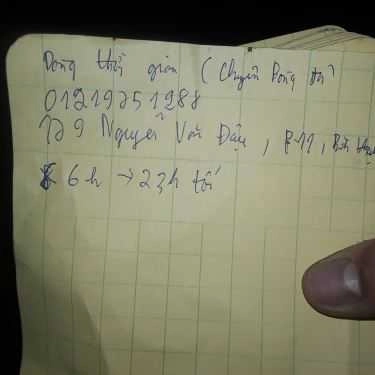 Dòng thời gian ( Chuyên
01219751288
129 Nguyễn Văn Đậu, P.11, Bình
6h → 23h tối